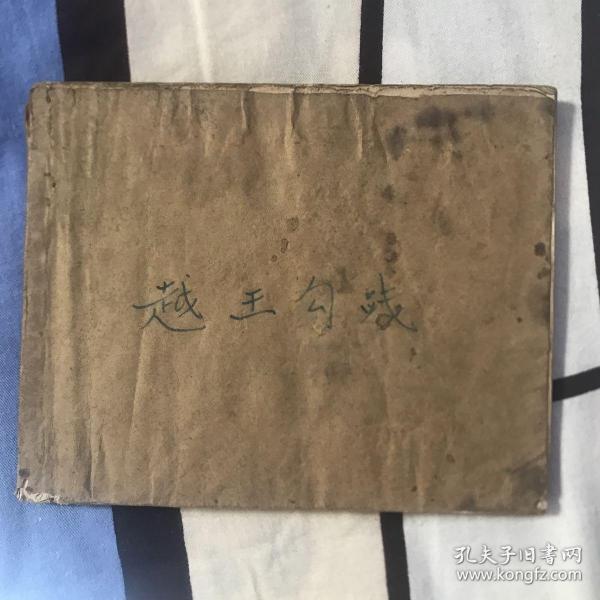 越王勾践
孔夫子旧书网
www.kongfz.com